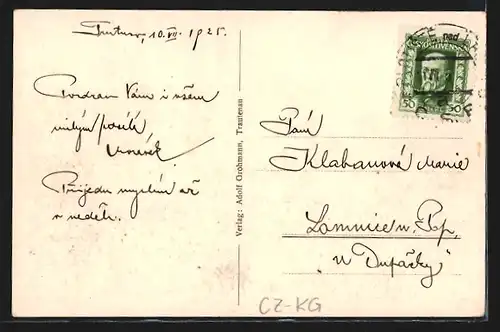 Trutnov, 10.VII. 1925.
Pozdrav Vám i všem
milým posílá
Přijedu myslím až
v neděli.
Verlag: Adolf Grohmann, Trautenau
50 50
Paní
Klabanová Marie
Lomnice n. Pop.
"u Dupáčky"
CZ-KG